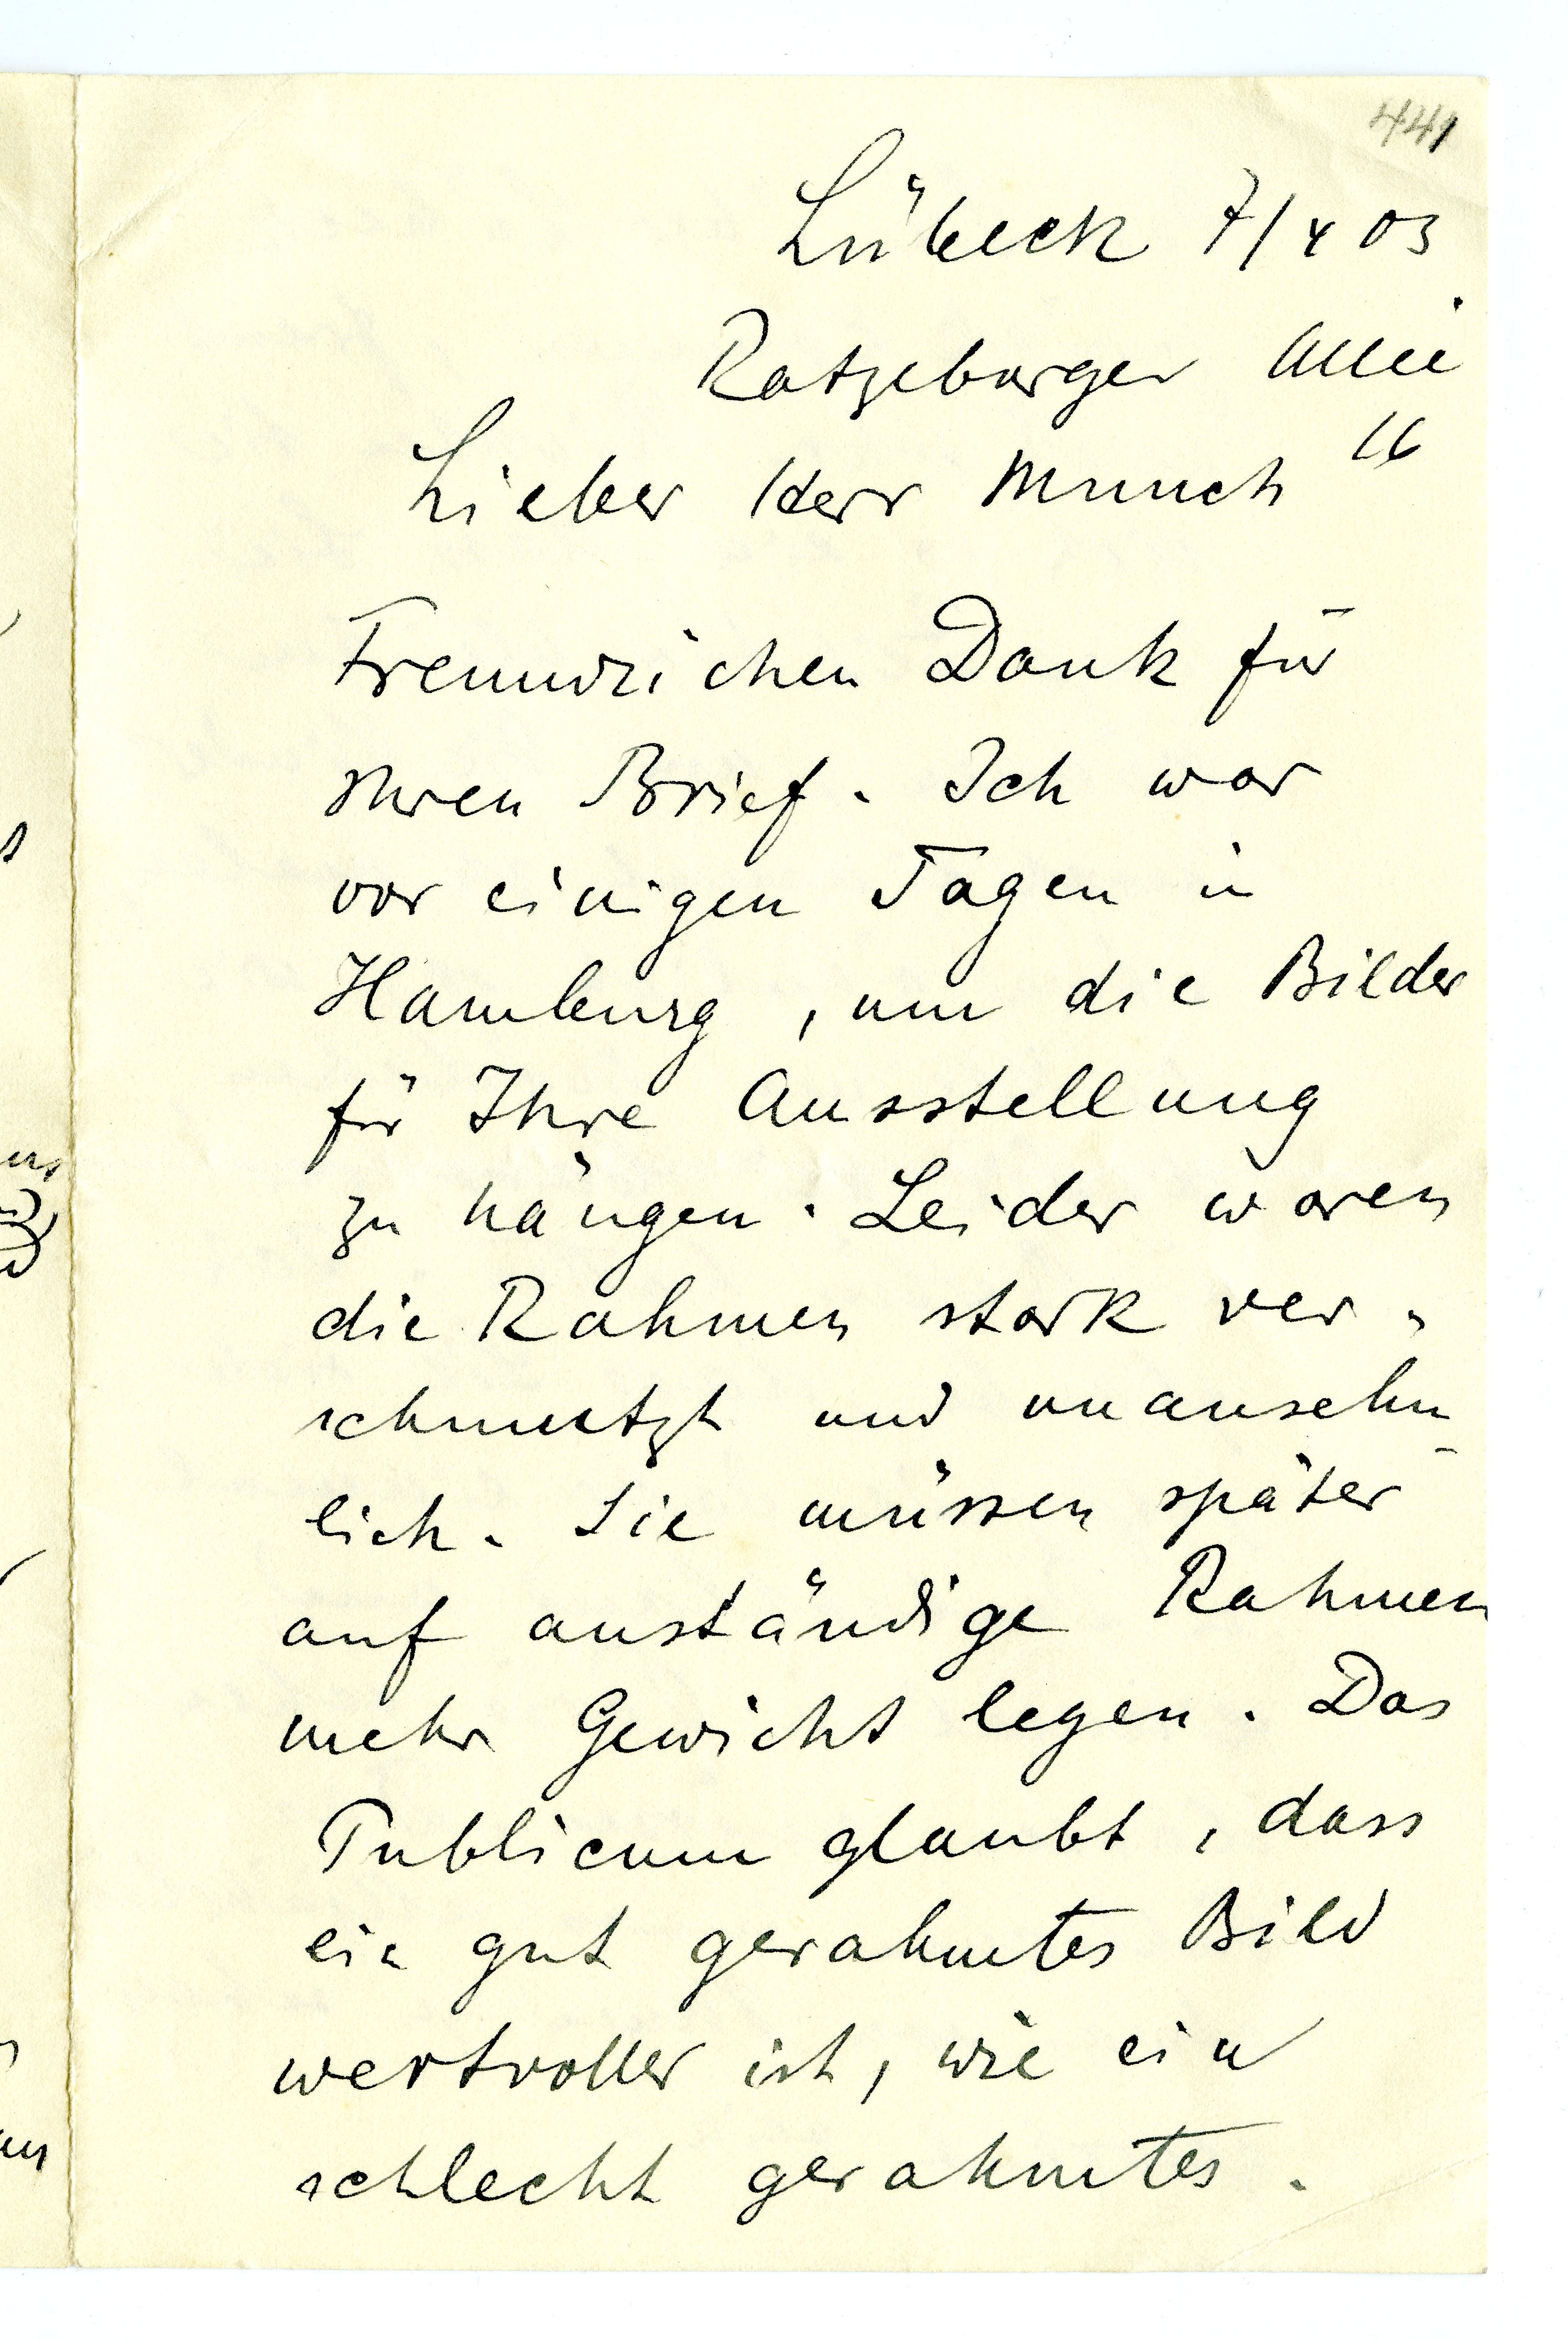 441
Lübeck 7/4 03
Ratzeburger Allee
16
Lieber Herr Munch
Freundlichen Dank für
Ihren Brief. Ich war
vor einigen Tagen in
Hamburg, um die Bilder
für Ihre Ausstellung
zu hängen. Leider waren
die Rahmen stark ver-
schmutzt und unansehn-
lich. Sie müssen später
auf anständige Rahmen
mehr Gewicht legen. Das
Publicum glaubt, dass
ein gut gerahmtes Bild
wertvoller ist, wie ein
schlecht gerahmtes.